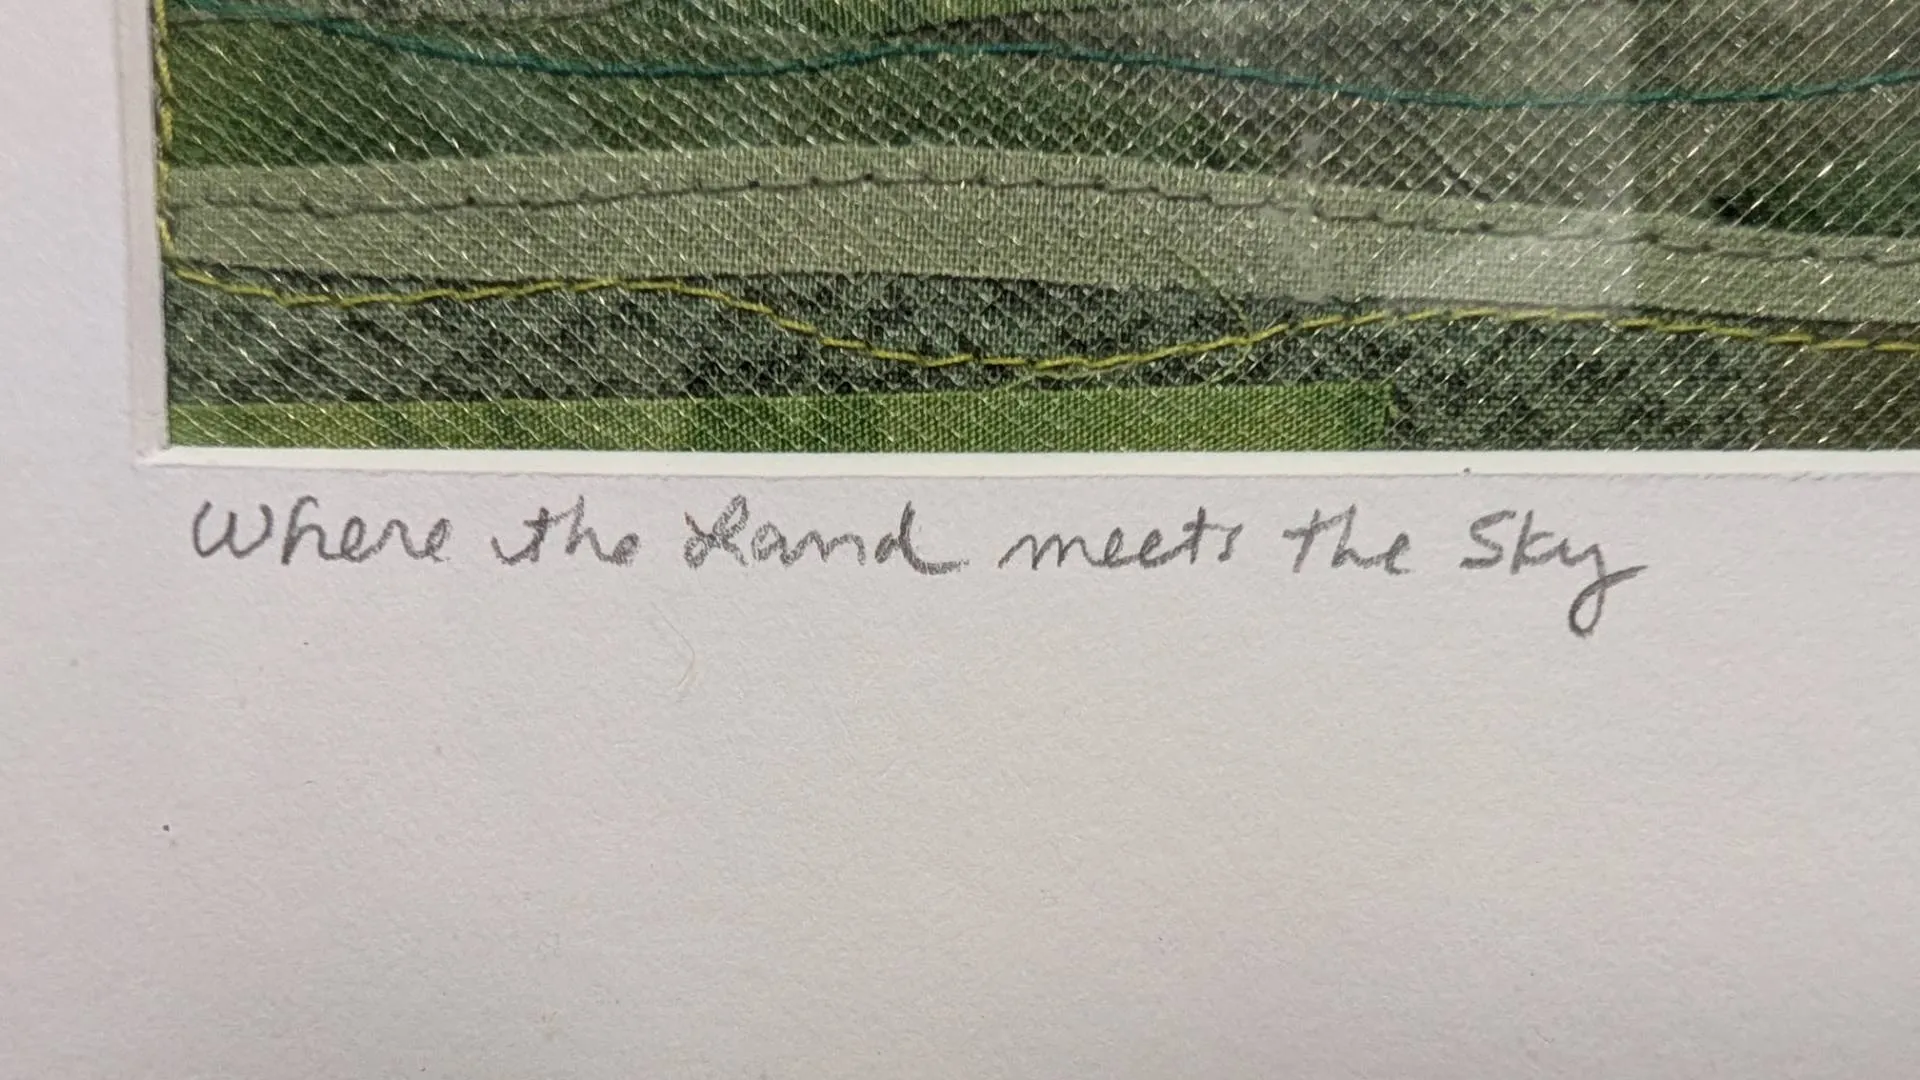 Where the Land meets the Sky